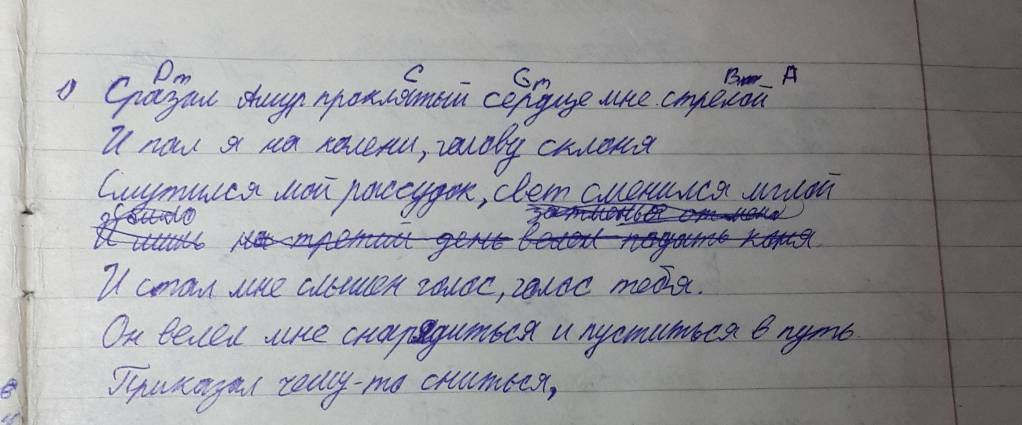 Dm C Gm Bm A
1) Сразал Амур проклятый сердце мне стрелой
И пал я на колени, голову склоня
Смутился мой рассудок, свет сменился мглой
затменья от меня
И лишь на третий день велел подать коня
И стал мне слышен голос, голос тебя.
Он велел мне снарядиться и пуститься в путь.
Приказал чему-то сниться,